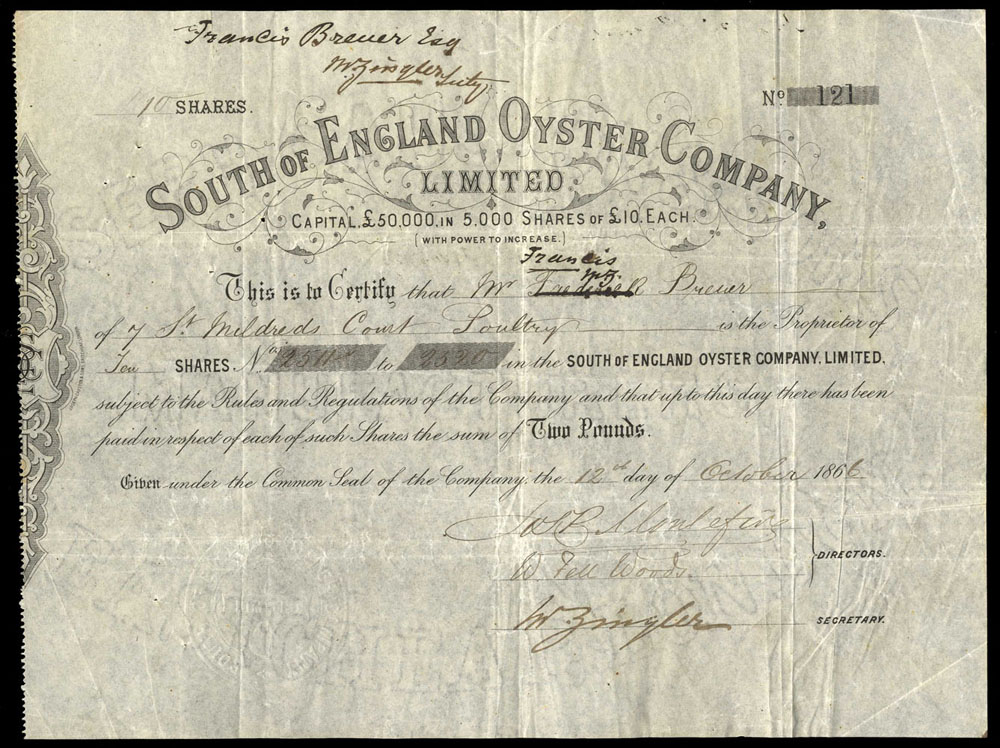 Francis Brewer Esq
W. Zingler Secty
10 SHARES. No. 121
SOUTH OF ENGLAND OYSTER COMPANY,
LIMITED.
CAPITAL, £50,000, IN 5,000 SHARES OF £10, EACH.
(WITH POWER TO INCREASE.)
Francis
W.Z.
This is to Certify that Mr Frederick Brewer
of 7 St Mildreds Court Poultry is the Proprietor of
Ten SHARES Nos. 2511 to 2520 in the SOUTH OF ENGLAND OYSTER COMPANY, LIMITED,
subject to the Rules and Regulations of the Company and that up to this day there has been
paid in respect of each of such Shares the sum of Two Pounds.
Given under the Common Seal of the Company, the 12th day of October 1866
DIRECTORS.
W Fell Woods.
W Zingler SECRETARY.